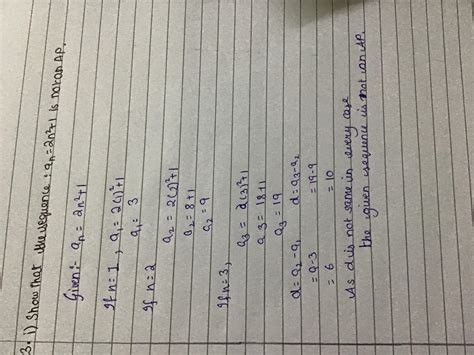 3. i) Show that the sequence : aₙ = 2n²+1 is not an AP.
Given:- aₙ = 2n²+1
If n=1, a₁ = 2(1)²+1
a₁ = 3
If n=2
a₂ = 2(2)²+1
a₂ = 8+1
a₂ = 9
If n=3,
a₃ = 2(3)²+1
a3 = 18+1
a₃ = 19
d = a₂-a₁ d = a₃-a₂
= 9-3 = 19-9
= 6 = 10
As d is not same in every case
the given sequence is not an AP.